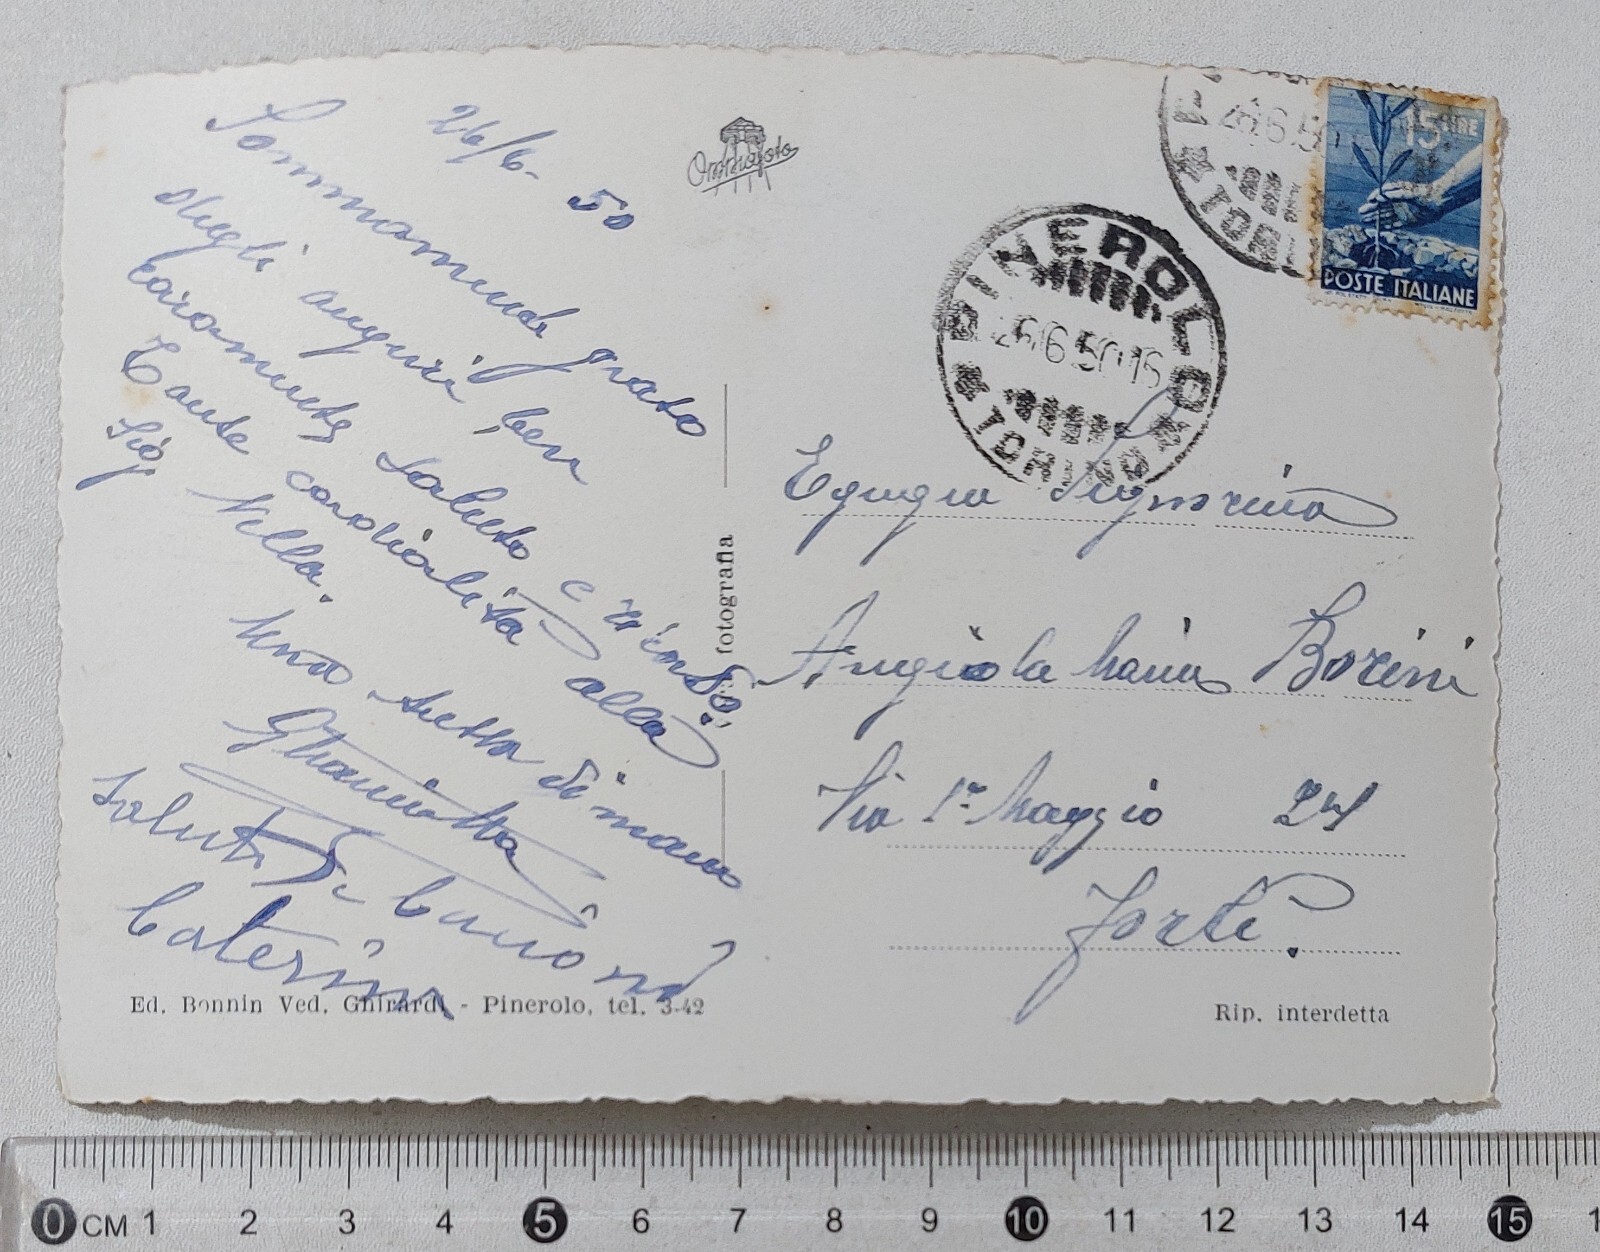 26/6-50
Sommamente grato
degli auguri ben
caramente saluto e
Tante cordialità alla
Sig. Villa.
Una stretta di mano
Saluti
Caterina
Ommafoto
fotografia
Ed. Bonnin Ved. Ghirardi - Pinerolo, tel. 3-42
PINEROLO
26.6.50.15
TORINO
26.6.50
TORINO
15 LIRE
POSTE ITALIANE
Egregia Signorina
Angiola Maria Borini
Via 1º Maggio 24
Forlì.
Rip. interdetta
0 CM 1 2 3 4 5 6 7 8 9 10 11 12 13 14 15